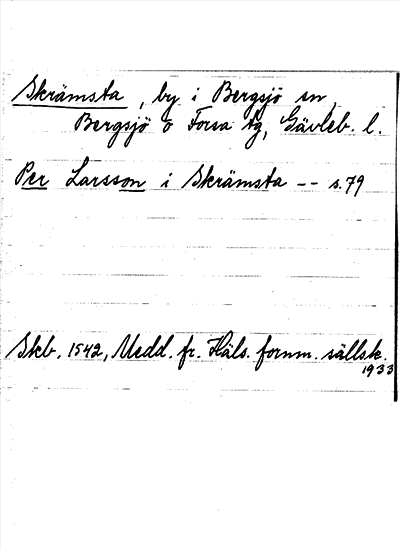 Skrämsta, by i Bergsjö sn,
Bergsjö o Forsa tg, Gävleb. l.
Per Larsson i Skrämsta -- s. 79
Skb. 1542, Medd. fr. Häls. fornm. sällsk.
1933